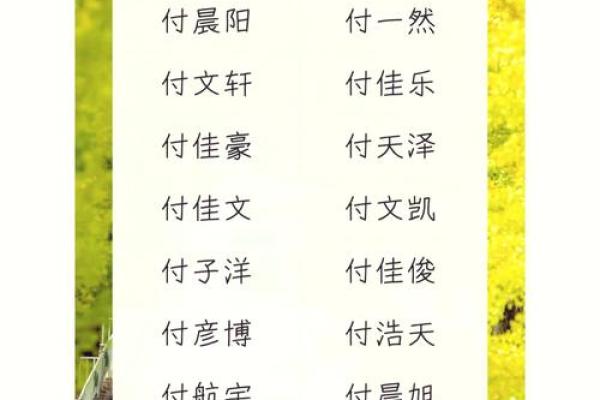 付晨阳 付一然
付文轩 付佳乐
付佳豪 付天泽
付佳文 付文凯
付子洋 付佳俊
付彦博 付浩天
付航宇 付晨旭